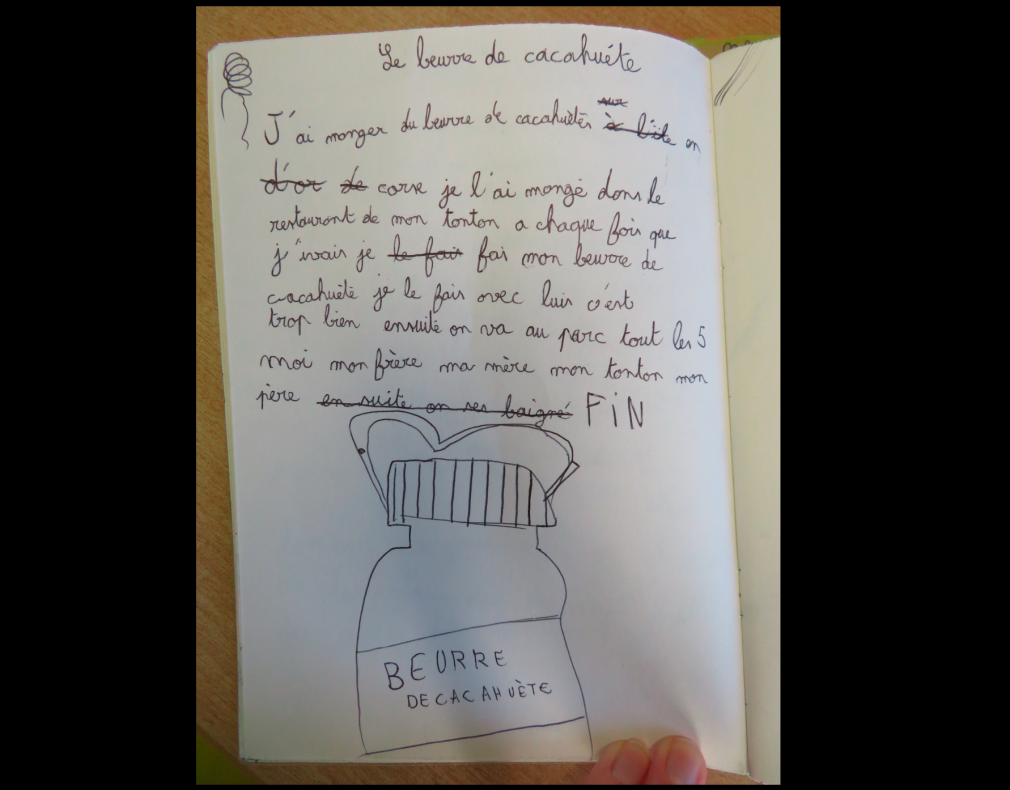 Le beurre de cacahuéte
J'ai monger du beurre de cacahuètes sur à l'île en
d'or de corse je l'ai mongé dons le
restauront de mon tonton a chaque fois que
j'ivais je le fais fais mon beurre de
cacahuète je le fais avec luis c'est
trop bien ensuite on va au parc tout les 5
moi mon frère ma mère mon tonton mon
père en suite on ses baigné FiN
BEURRE
DE CACAHUÈTE